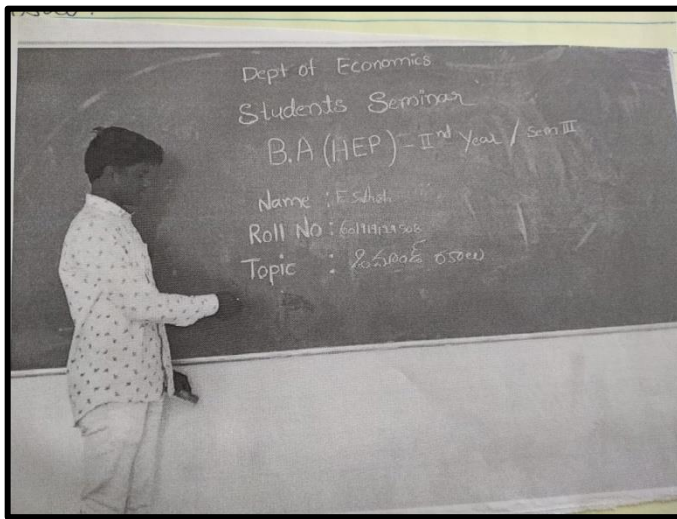 Dept of Economics
Students Seminar
B.A (HEP) - IInd Year / Sem III
Name :
Roll No :
Topic : డిమాండ్ రకాలు